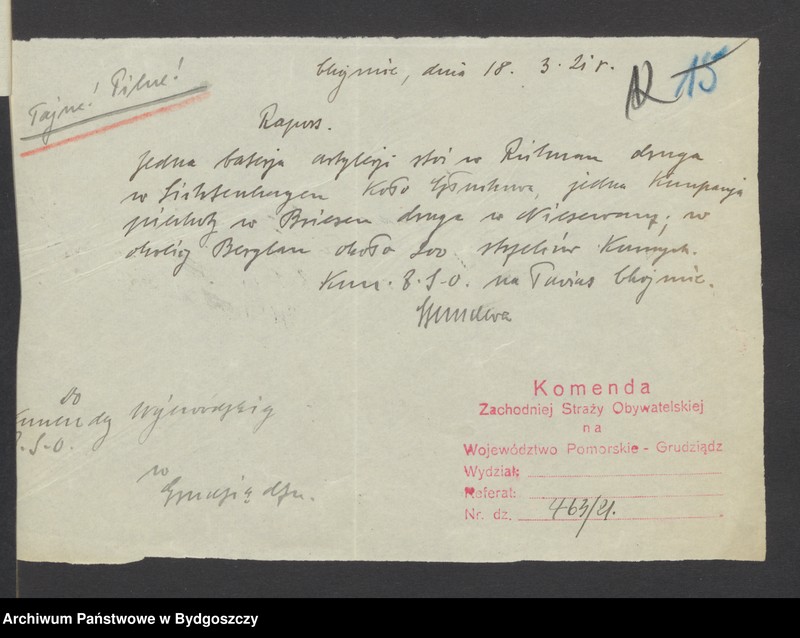 Chojnice, dnia 18. 3. 21 r.
12 15
Tajne! Pilne!
Raport.
Jedna baterja artylerji stoi w Rittman druga
w Lichtenhagen koło Człuchowa, jedna Kompanja
piechoty w Briesen druga w , w
okolicy Berglau około 200 strzelców Konnych.
Kom. Z.S.O. na Powiat Chojnice.
Do
Komendy Wojewódzkiej
Z.S.O.
w
Grudziądzu.
Komenda
Zachodniej Straży Obywatelskiej
na
Województwo Pomorskie - Grudziądz
Wydział:
Referat:
Nr. dz. 463/21.
Archiwum Państwowe w Bydgoszczy